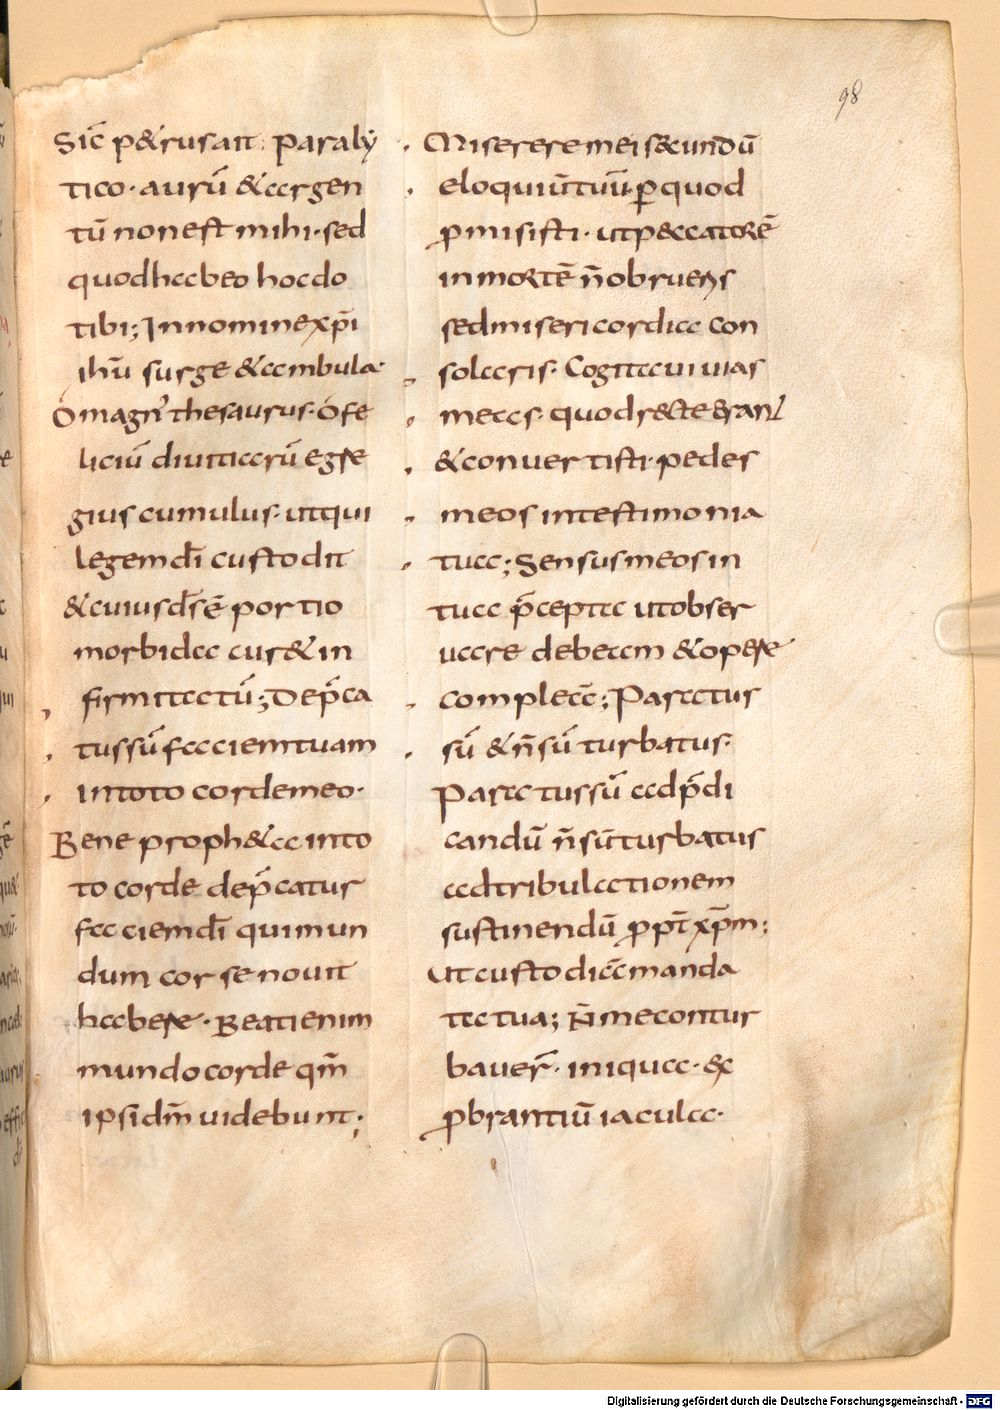 98
Sic̄ p&rus ait: Paraly
tico· aurū & argen
tū non est mihi· sed
quod habeo hoc do
tibi; In nomine xp̄i
ihū surge & ambula·
O magn' thesaurus· O fe
liciū diuitiarū egre
gius cumulus· ut qui
legem dī custodit
& cuius ds̄ ē portio
morbida cur& in
firmitatū; Dep̄ca
tus sū faciem tuam
in toto corde meo·
Bene proph&a in to
to corde dep̄catur
faciem dī qui mun
dum cor se nouit
habere· Beati enim
mundo corde qm̄
ipsi dm̄ uidebunt;
Miserere mei s&cundū
eloquiū tuū· ꝑ quod
ꝓmisisti· ut p&catorē
in mortē n̄ obrueris
sed misericordia con
soleris· Cogitaui uias
meas· quod r&te erant
& conuertisti· pedes
meos in testimonia
tua; Sensus meos in
tua p̄cepta ut obser
uare debeam & opere
compleā; Paratus
sū & n̄ sū turbatus·
Paratus sū ad p̄di
candū n̄ sū turbatus
ad tribulationem
sustinendū ꝓpt̄ xp̄m;
Ut custodiā manda
ta tua; N̄ me contur
bauer̄· iniqua· &
ꝓbrantiū iacula·
Digitalisierung gefördert durch die Deutsche Forschungsgemeinschaft - DFG